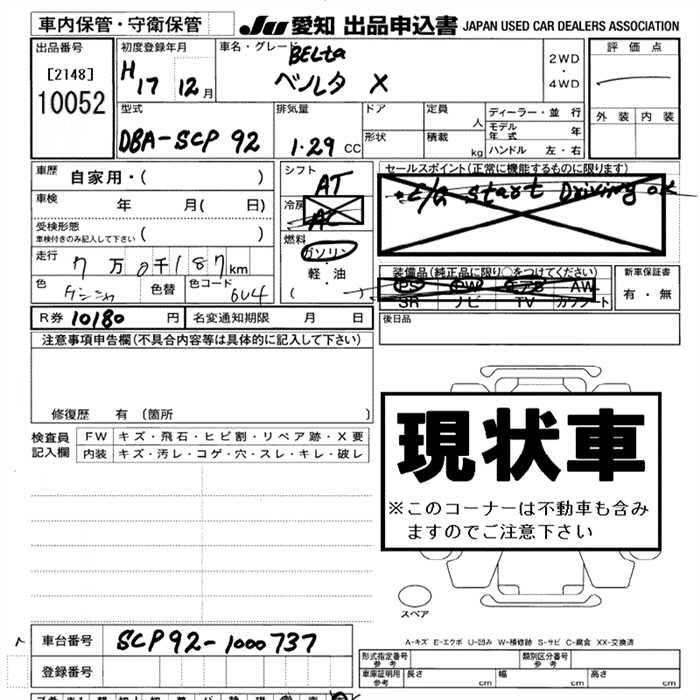 車内保管・守衛保管 JU 愛知 出品申込書 JAPAN USED CAR DEALERS ASSOCIATION
出品番号 初度登録年月 車名・グレード 評価点
[2148] H17 12月 BELta 2WD・4WD
10052 ベルタ X
型式 排気量 ドア 定員 人 ディーラー・並行 外装 内装
DBA-SCP 92 1.29 CC 形状 積載 kg モデル年式 年
ハンドル 左・右
車歴 自家用・( ) シフト AT セールスポイント(正常に機能するものに限ります)
車検 年 月( 日) 冷房 AC E/G Start Driving OK
受検形態 ( )
車検付きのみ記入して下さい
燃料 ガソリン・軽・油 ( )
走行 7万0千187km 装備品(純正品に限り○をつけてください) 新車保証書
色 色替 色コード 6U4 PS PW エアB AW 有・無
SR ナビ TV カワシート
R券 10180 円 名変通知期限 月 日 後日品
注意事項申告欄(不具合内容等は具体的に記入して下さい)
修復歴 有 [箇所 ]
検査員記入欄 FW キズ・飛石・ヒビ割・リペア跡・X要
内装 キズ・汚レ・コゲ・穴・スレ・キレ・破レ
現状車
※このコーナーは不動車も含み
ますのでご注意下さい
スペア
A-キズ E-エクボ U-凹み W-補修跡 S-サビ C-腐食 XX-交換済
車台番号 SCP92-1000737
登録番号
形式指定番号 参考 類別区分番号 参考
車庫証明用 参考 長さ cm 幅 cm 高さ cm